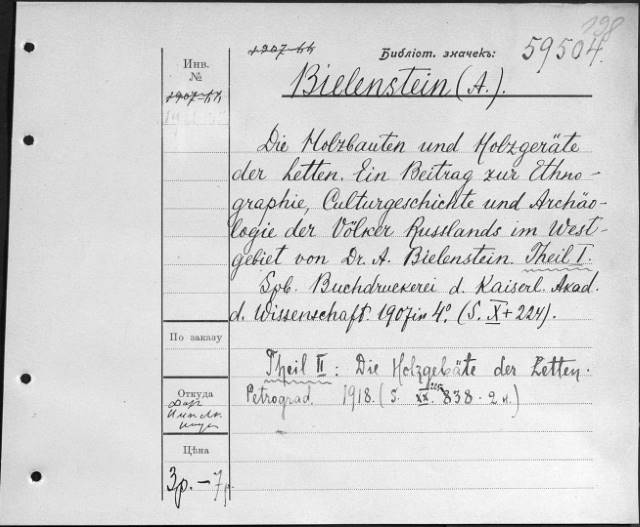 198
1907-44
Библіот. значекъ:
59504.
Инв.
№
1907-44
Bielenstein (A.).
Die Holzbauten und Holzgeräte
der Letten. Ein Beitrag zur Ethno-
graphie, Culturgeschichte und Archäo-
logie der Völker Russlands im West-
gebiet von Dr. A. Bielenstein. Theil I.
Spb. Buchdruckerei d. Kaiserl. Akad.
d. Wissenschaft. 1907 in 4º. (S. X + 224).
По заказу
Theil II: Die Holzgeräte der Letten.
Petrograd. 1918. (S. 838 - 2 н.)
Откуда
Дар
Цѣна
3р. – 7р.